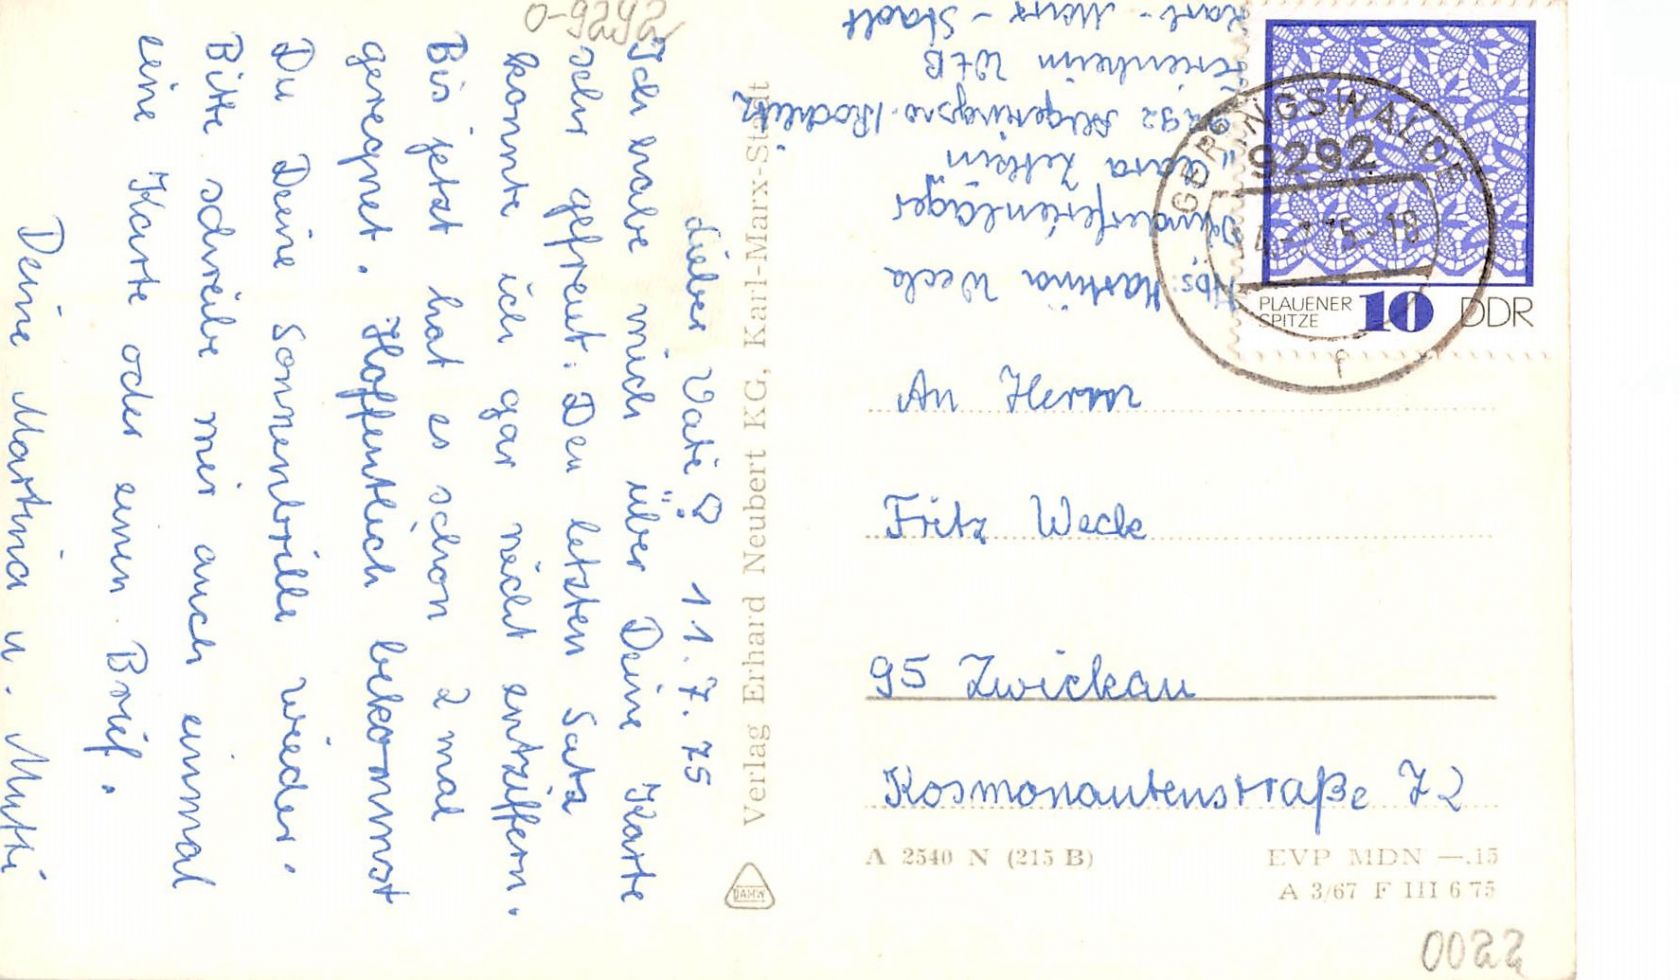 0-9292
Lieber Vati! 11.7.75
Ich habe mich über Deine Karte
sehr gefreut. Den letzten Satz
konnte ich gar nicht entziffern.
Bis jetzt hat es schon 2 mal
geregnet. Hoffentlich bekommst
Du Deine Sonnenbrille wieder.
Bitte schreibe mir auch einmal
eine Karte oder einen Brief.
Deine Martina u. Mutti
Verlag Erhard Neubert KG, Karl-Marx-Stadt
Abs: Martina Weck
Kinderferienlager
"Clara Zetkin"
9292 Geringsw. /Rochlitz
Ferienheim WtB
Karl-Marx-Stadt
PLAUENER
SPITZE
10 DDR
GERINGSWALDE
9292
75-18
f
An Herrn
Fritz Weck
95 Zwickau
Kosmonautenstraße 72
A 2540 N (215 B)
EVP MDN —.15
A 3/67 F III 6 75
0022